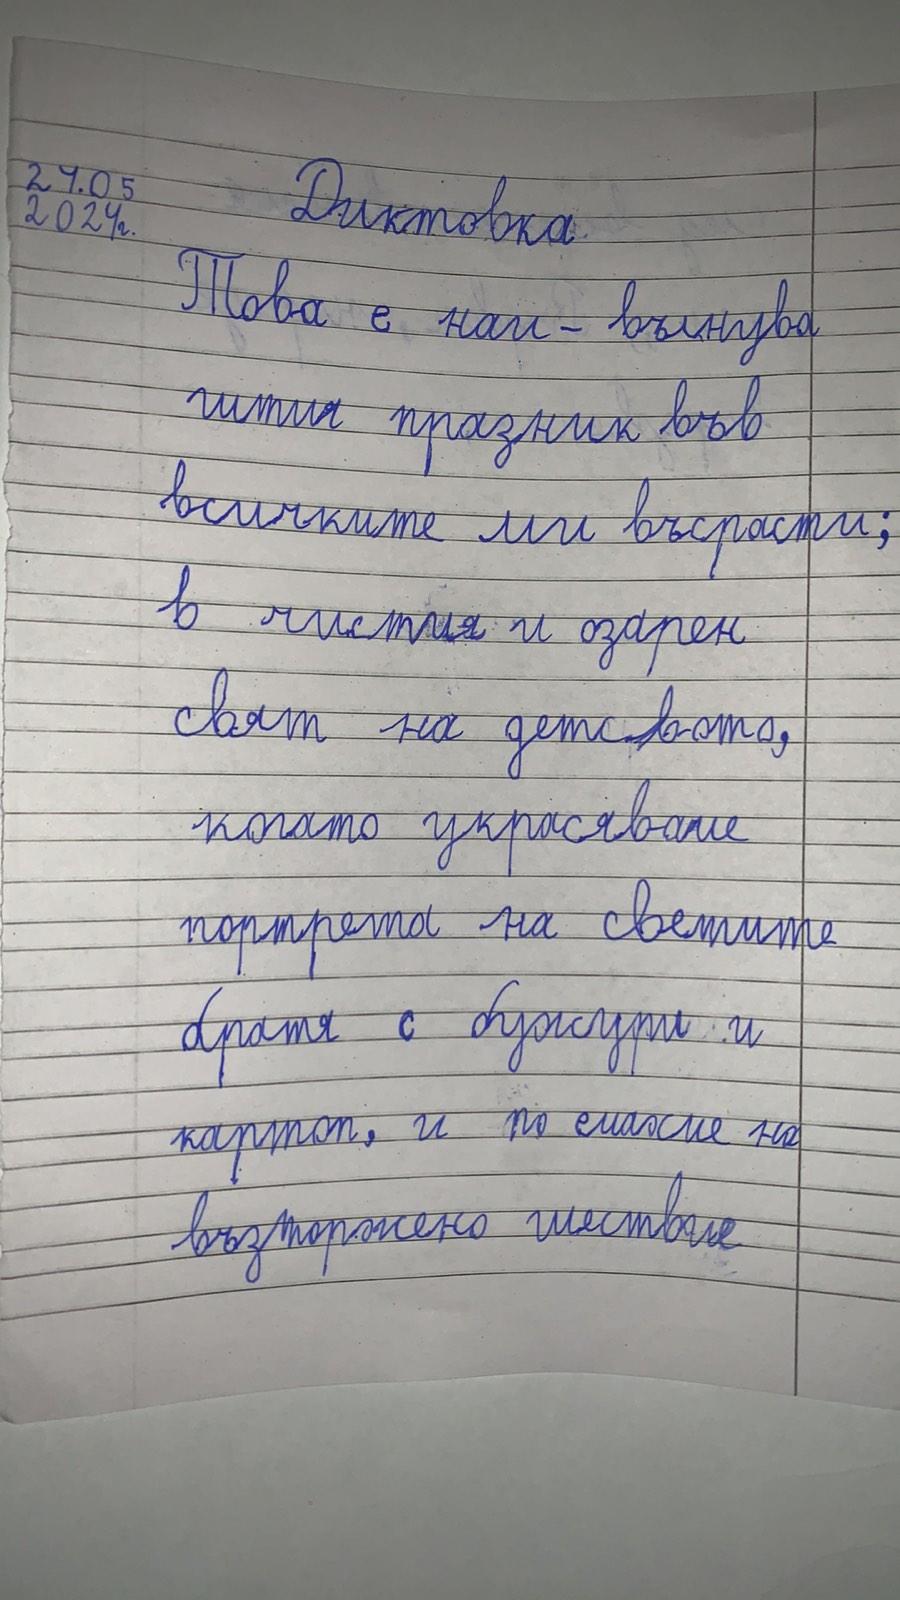 24.05
2024г.
Диктовка
Това е наи-вълнува
щтия празник във
всичките ми въсрасти;
в чистия и озарен
свят на детството,
когато украсяваме
портрета на светите
братя с бужури и
картоп, и по
възторжено шествие